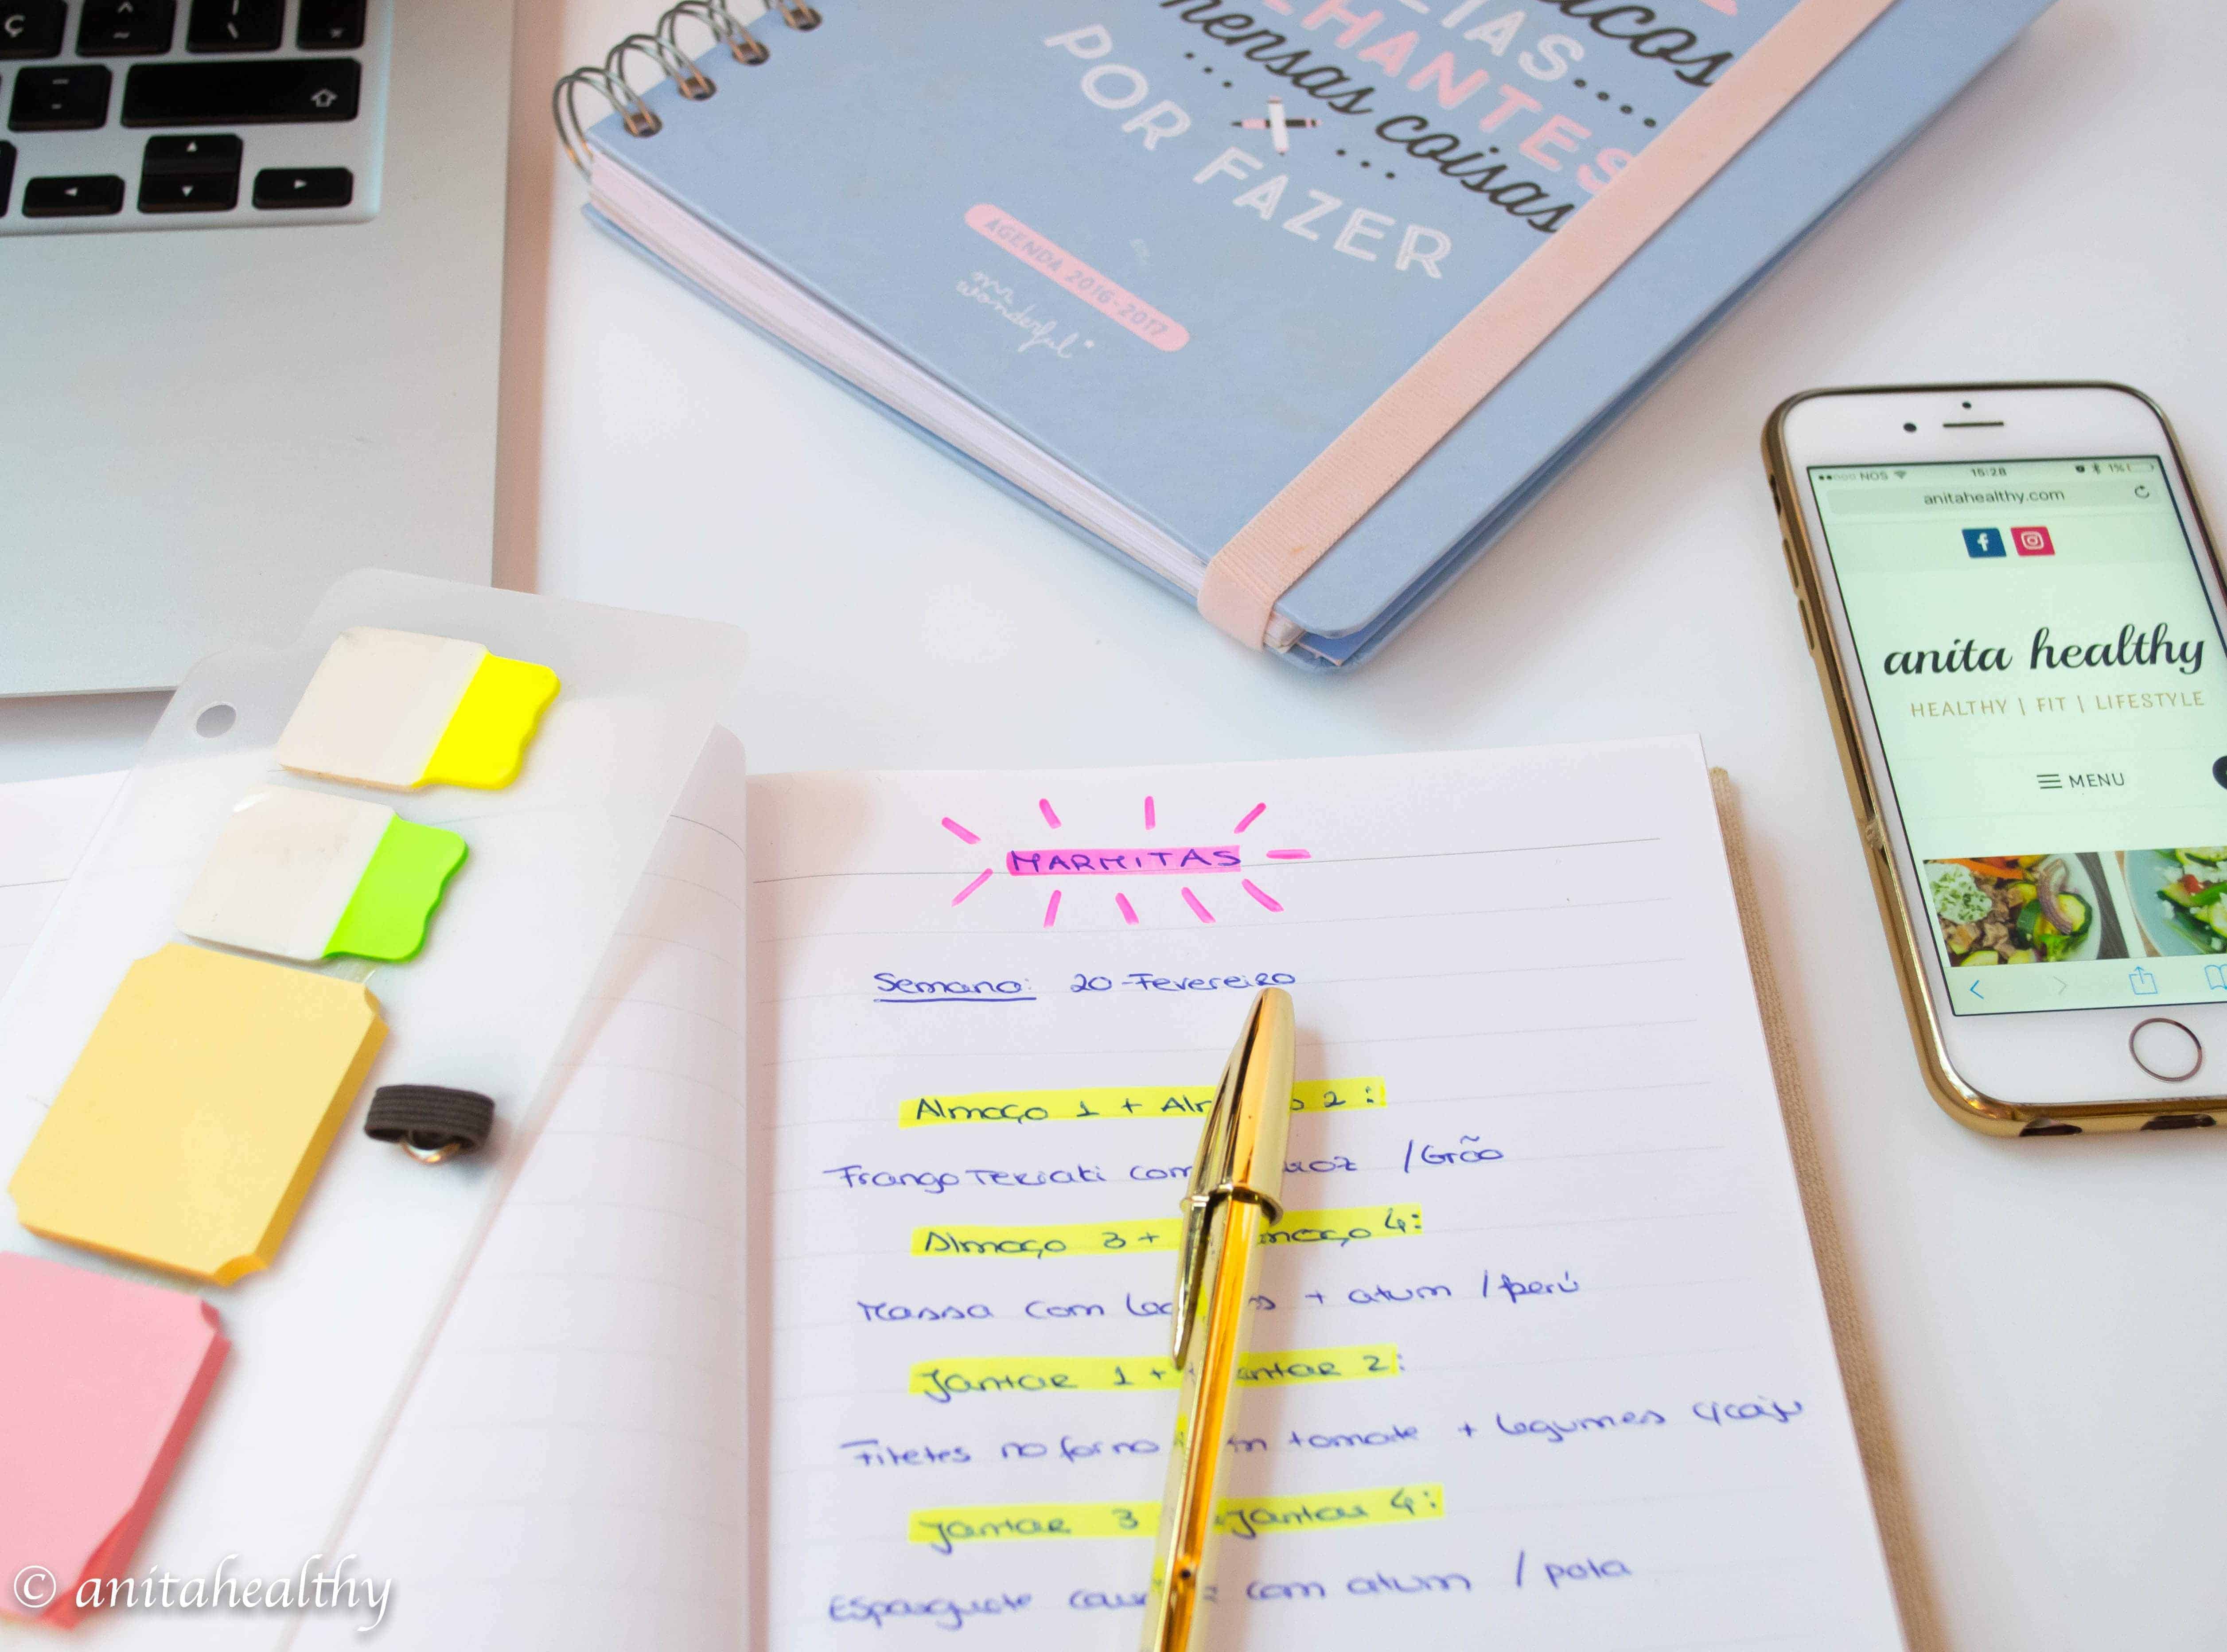 ç
acos
LIAS....
LHANTES
mensas coisas
... X ...
POR FAZER
AGENDA 2016-2017
mr.
wonderful*
NOS 15:28 1%
anitahealthy.com
f
anita healthy
HEALTHY | FIT | LIFESTYLE
MENU
MARMITAS
Semana: 20-Fevereiro
Almoço 1 + Alm o 2:
Frango Teriaki com roz /Grão
Almoço 3 + moço 4:
Massa com + atum /perú
Jantar 1 + antar 2:
Filetes no forno tomate + legumes
Jantar 3 Jantar 4:
Esparguete com atum / pota
© anitahealthy